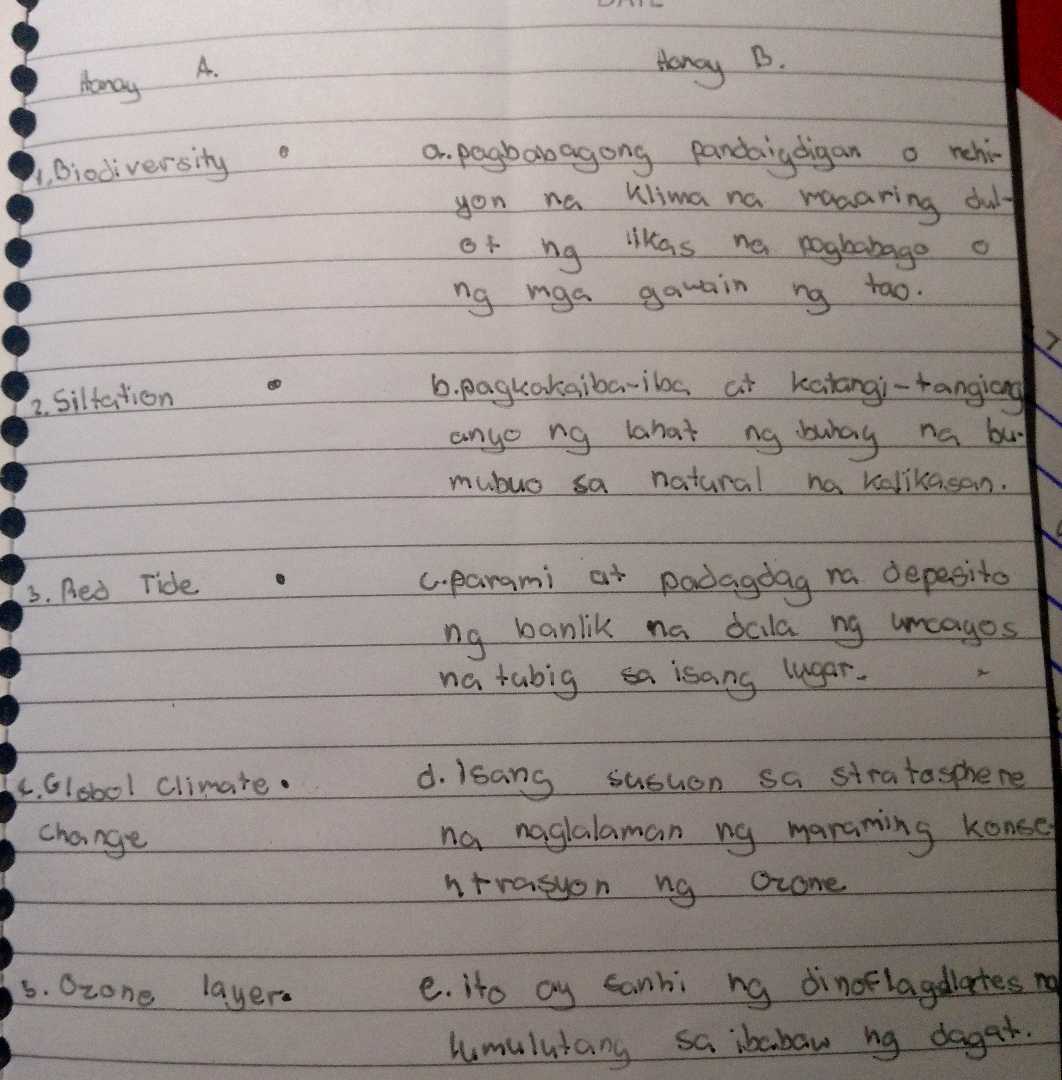 DATE
Hanay A. Hanay B.
1. Biodiversity • a. pagbabagong pandaigdigan o rehi-
yon na Klima na maaaring dul-
ot ng likas na pagbabago o
ng mga gawain ng tao.
2. Siltation • b. pagkakaiba-iba at katangi-tangiang
anyo ng lahat ng buhay na bu-
mubuo sa natural na kalikasan.
3. Red Tide • c. parami at padagdag na deposito
ng banlik na dala ng umaagos
na tubig sa isang lugar.
4. Global Climate • d. Isang susuon sa stratosphere
Change na naglalaman ng maraming konse
ntrasyon ng Ozone
5. Ozone layer • e. ito ay sanhi ng dinoflagdlates na
lumulutang sa ibabaw ng dagat.